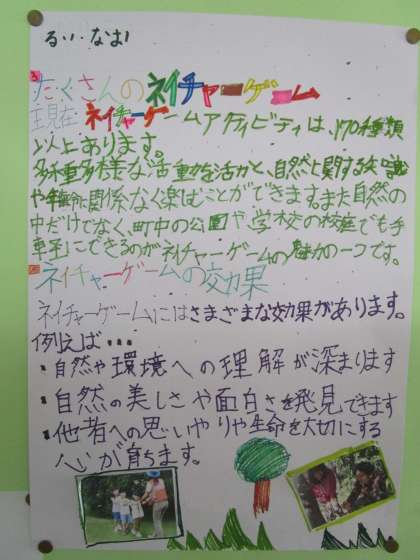 るい・なお
たくさんのネイチャーゲーム
現在ネイチャーゲームアクティビティは、170種類
以上あります。
多種多様な活動を活かし、自然に関する知識
や年齢に関係なく楽しむことができます。また自然の
中だけでなく、町中の公園や、学校の校庭でも手
軽にできるのがネイチャーゲームの魅力の一つです。
ネイチャーゲームの効果
ネイチャーゲームにはさまざまな効果があります。
例えば・・・
・自然や環境への理解が深まります
・自然の美しさや面白さを発見できます
・他者への思いやりや生命を大切にする
心が育ちます。